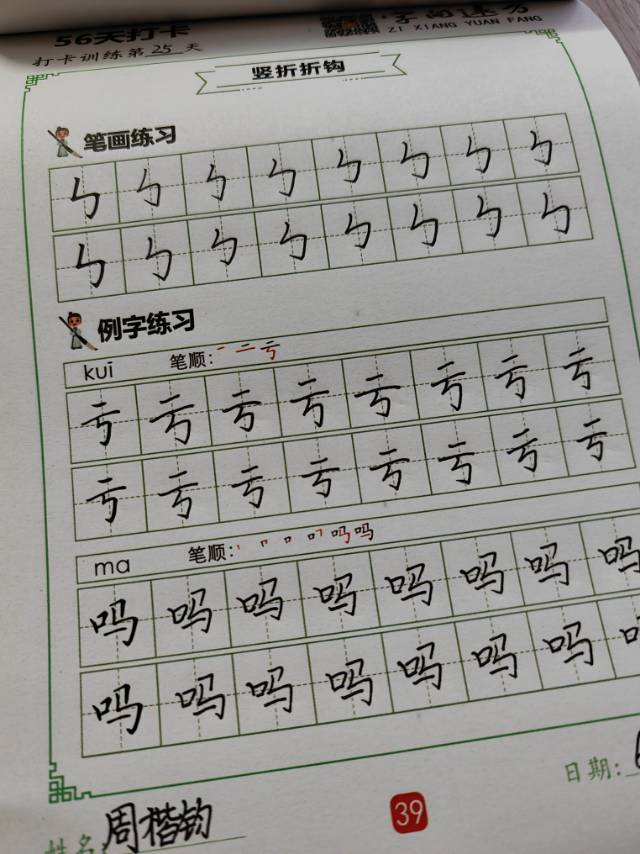 56天打卡
字向速方
ZI XIANG YUAN FANG
打卡训练第25天
竖折折钩
笔画练习
㇉ ㇉ ㇉ ㇉ ㇉ ㇉ ㇉ ㇉
㇉ ㇉ ㇉ ㇉ ㇉ ㇉ ㇉ ㇉
例字练习
kuī 笔顺: 一 二 亏
亏 亏 亏 亏 亏 亏 亏 亏
亏 亏 亏 亏 亏 亏 亏 亏
ma 笔顺: 丨 𠃍 口 叮 吗 吗
吗 吗 吗 吗 吗 吗 吗 吗
吗 吗 吗 吗 吗 吗 吗
日期:
39
姓名:周楷钧